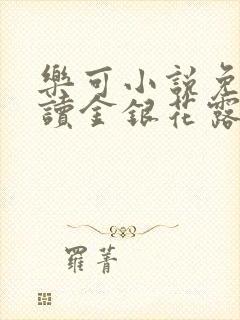 樂可小說免
讀金銀花露
羅菁